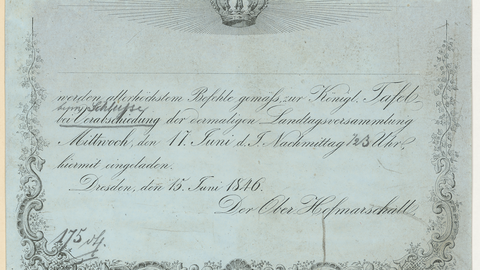 werden allerhöchstem Befehle gemäss, zur Königl. Tafel
beym Schlusse
bei Verabschiedung der dermaligen Landtagsversammlung
Mittwoch, den 17. Juni d. J. Nachmittag 1/2 3 Uhr,
hiermit eingeladen.
Dresden, den 15. Juni 1846.
Der Ober Hofmarschall
175